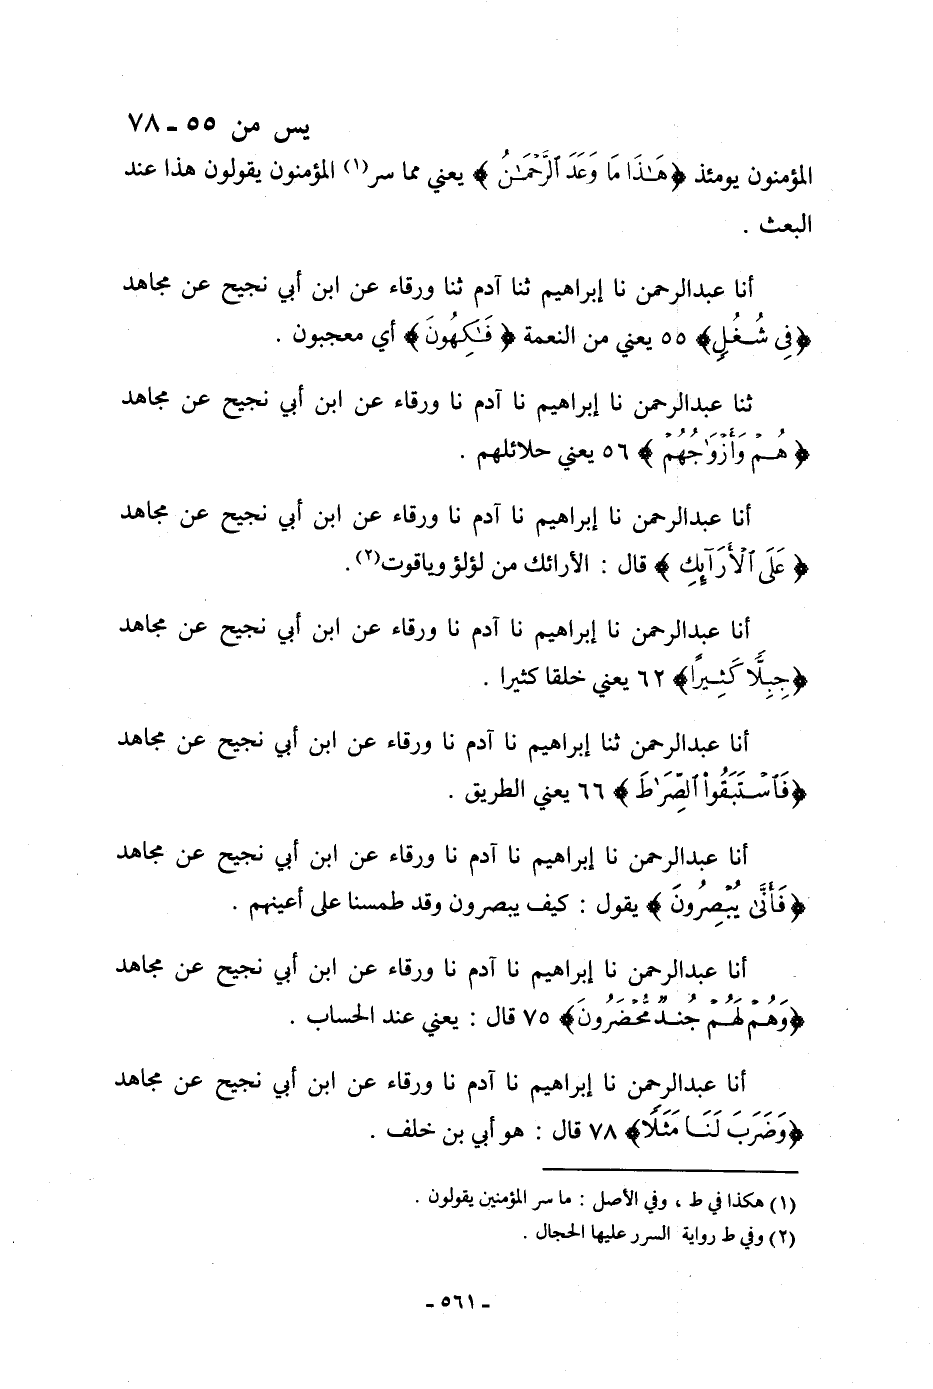 يس من ٥٥ ـ ٧٨
المؤمنون يومئذ ﴿هَـٰذَا مَا وَعَدَ ٱلرَّحْمَـٰنُ ﴾ يعني مما سر(١) المؤمنون يقولون هذا عند
البعث .
أنا عبدالرحمن نا إبراهيم ثنا آدم ثنا ورقاء عن ابن أبي نجيح عن مجاهد
﴿فِى شُغُلٍ﴾ ٥٥ يعني من النعمة ﴿ فَـٰكِهُونَ ﴾ أي معجبون .
ثنا عبدالرحمن نا إبراهيم نا آدم نا ورقاء عن ابن أبي نجيح عن مجاهد
﴿ هُـمْ وَأَزْوَٰجُهُمْ ﴾ ٥٦ يعني حلائلهم .
أنا عبدالرحمن نا إبراهيم نا آدم نا ورقاء عن ابن أبي نجيح عن مجاهد
﴿ عَلَى ٱلْأَرَآئِكِ ﴾ قال : الأرائك من لؤلؤ وياقوت(٢).
أنا عبدالرحمن نا إبراهيم نا آدم نا ورقاء عن ابن أبي نجيح عن مجاهد
﴿جِبِلًّا كَثِـيرًا﴾ ٦٢ يعني خلقا كثيرا .
أنا عبدالرحمن ثنا إبراهيم نا آدم نا ورقاء عن ابن أبي نجيح عن مجاهد
﴿فَٱسْـتَبَقُوا۟ ٱلصِّرَٰطَ ﴾ ٦٦ يعني الطريق .
أنا عبدالرحمن نا إبراهيم نا آدم نا ورقاء عن ابن أبي نجيح عن مجاهد
﴿فَأَنَّىٰ يُبْصِرُونَ ﴾ يقول : كيف يبصرون وقد طمسنا على أعينهم .
أنا عبدالرحمن نا إبراهيم نا آدم نا ورقاء عن ابن أبي نجيح عن مجاهد
﴿وَهُـمْ لَهُـمْ جُنـدٌ مُّحْضَرُونَ﴾ ٧٥ قال : يعني عند الحساب .
أنا عبدالرحمن نا إبراهيم نا آدم نا ورقاء عن ابن أبي نجيح عن مجاهد
﴿وَضَرَبَ لَنَـا مَثَلًا﴾ ٧٨ قال : هو أبي بن خلف .
(١) هكذا في ط ، وفي الأصل : ما سر المؤمنين يقولون .
(٢) وفي ط رواية السرر عليها الحجال .
ـ ٥٦١ ـ